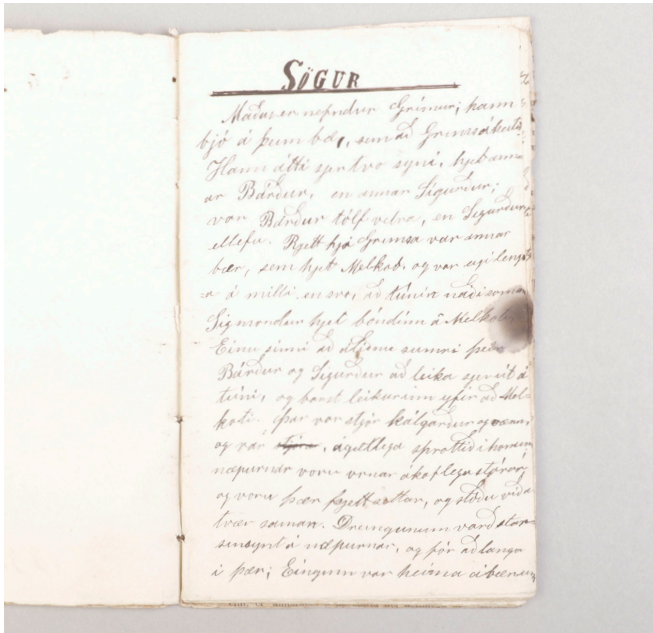 SÖGUR
Maður er nefndur Grímur; hann
bjó á þeim bæ, sem að Grímsá heitir
Hann átti sjer tvo syni, hjet ann-
ar Bárður, en annar Sigurður;
var Bárður tólf vetra, en Sigurður
ellefu. Rjett hjá Grímsá var annar
bær, sem hjet Melkot, og var eigi lengra
á milli en svo, að túnin náðu saman
Sigmundur hjet bóndinn á Melkoti.
Einu sinni að sumri
Bárður og Sigurður að leika sjer út á
túni, og barst leikurinn yfir að Mel-
koti. Þar var stór kálgarður og vænn;
og var stóra, ágætlega sprottið í honum
næpurnar voru ákaflega stórar,
og voru þær og stóðu víða
tvær saman. Drengunum varð star-
sínt á næpurnar, og fór að langa
í þær; Eingin var heima á bænum,